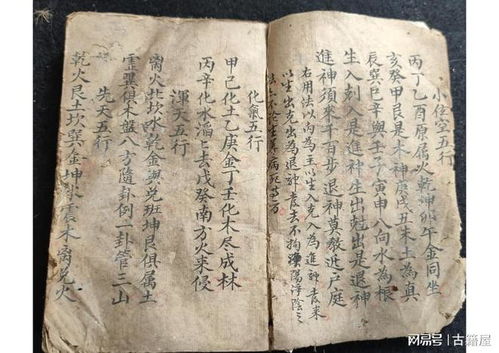 小空五行
丙丁乙酉原属火乾坤卯午金同坐
亥癸甲艮是木神庚戌丑未土為真
辰巽巳辛與壬子寅申八向水為根
生入剋入是進神生出尅出是退神
進神須來千百步退神莫教近戶庭
右用法以内為主以生入克入為進神去来
以生出克出為退神去不拘
不論生病死方
化氣五行
甲己化土乙庚金丁壬化木尽成林
丙辛化水滔々去戊癸南方火来侵
渾天五行
离火坎水乾金與兑班坤艮俱属土
震巽俱木盤八方隨卦例一卦管三山
先天五行
乾火艮土坎巽金坤水震木离兑火
网易号 | 古籍屋